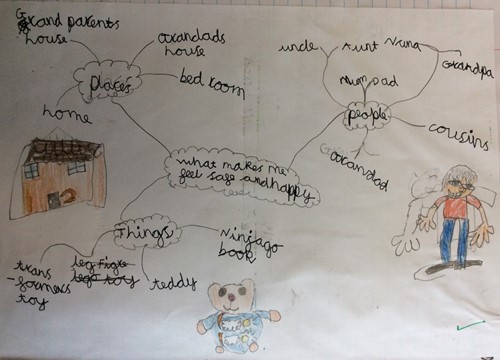 Grand parents
house
Grandads
house
places
bed room
home
uncle
Aunt
Nana
Grandpa
mum
Dad
people
cousins
Grandad
what makes me
feel safe and happy
Things
Ninjago
book
trans
-formers
toy
lego toy
teddy